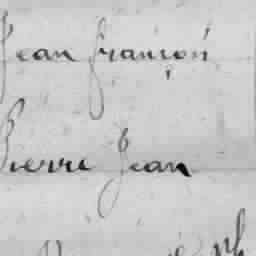 Jean françois
Pierre Jean